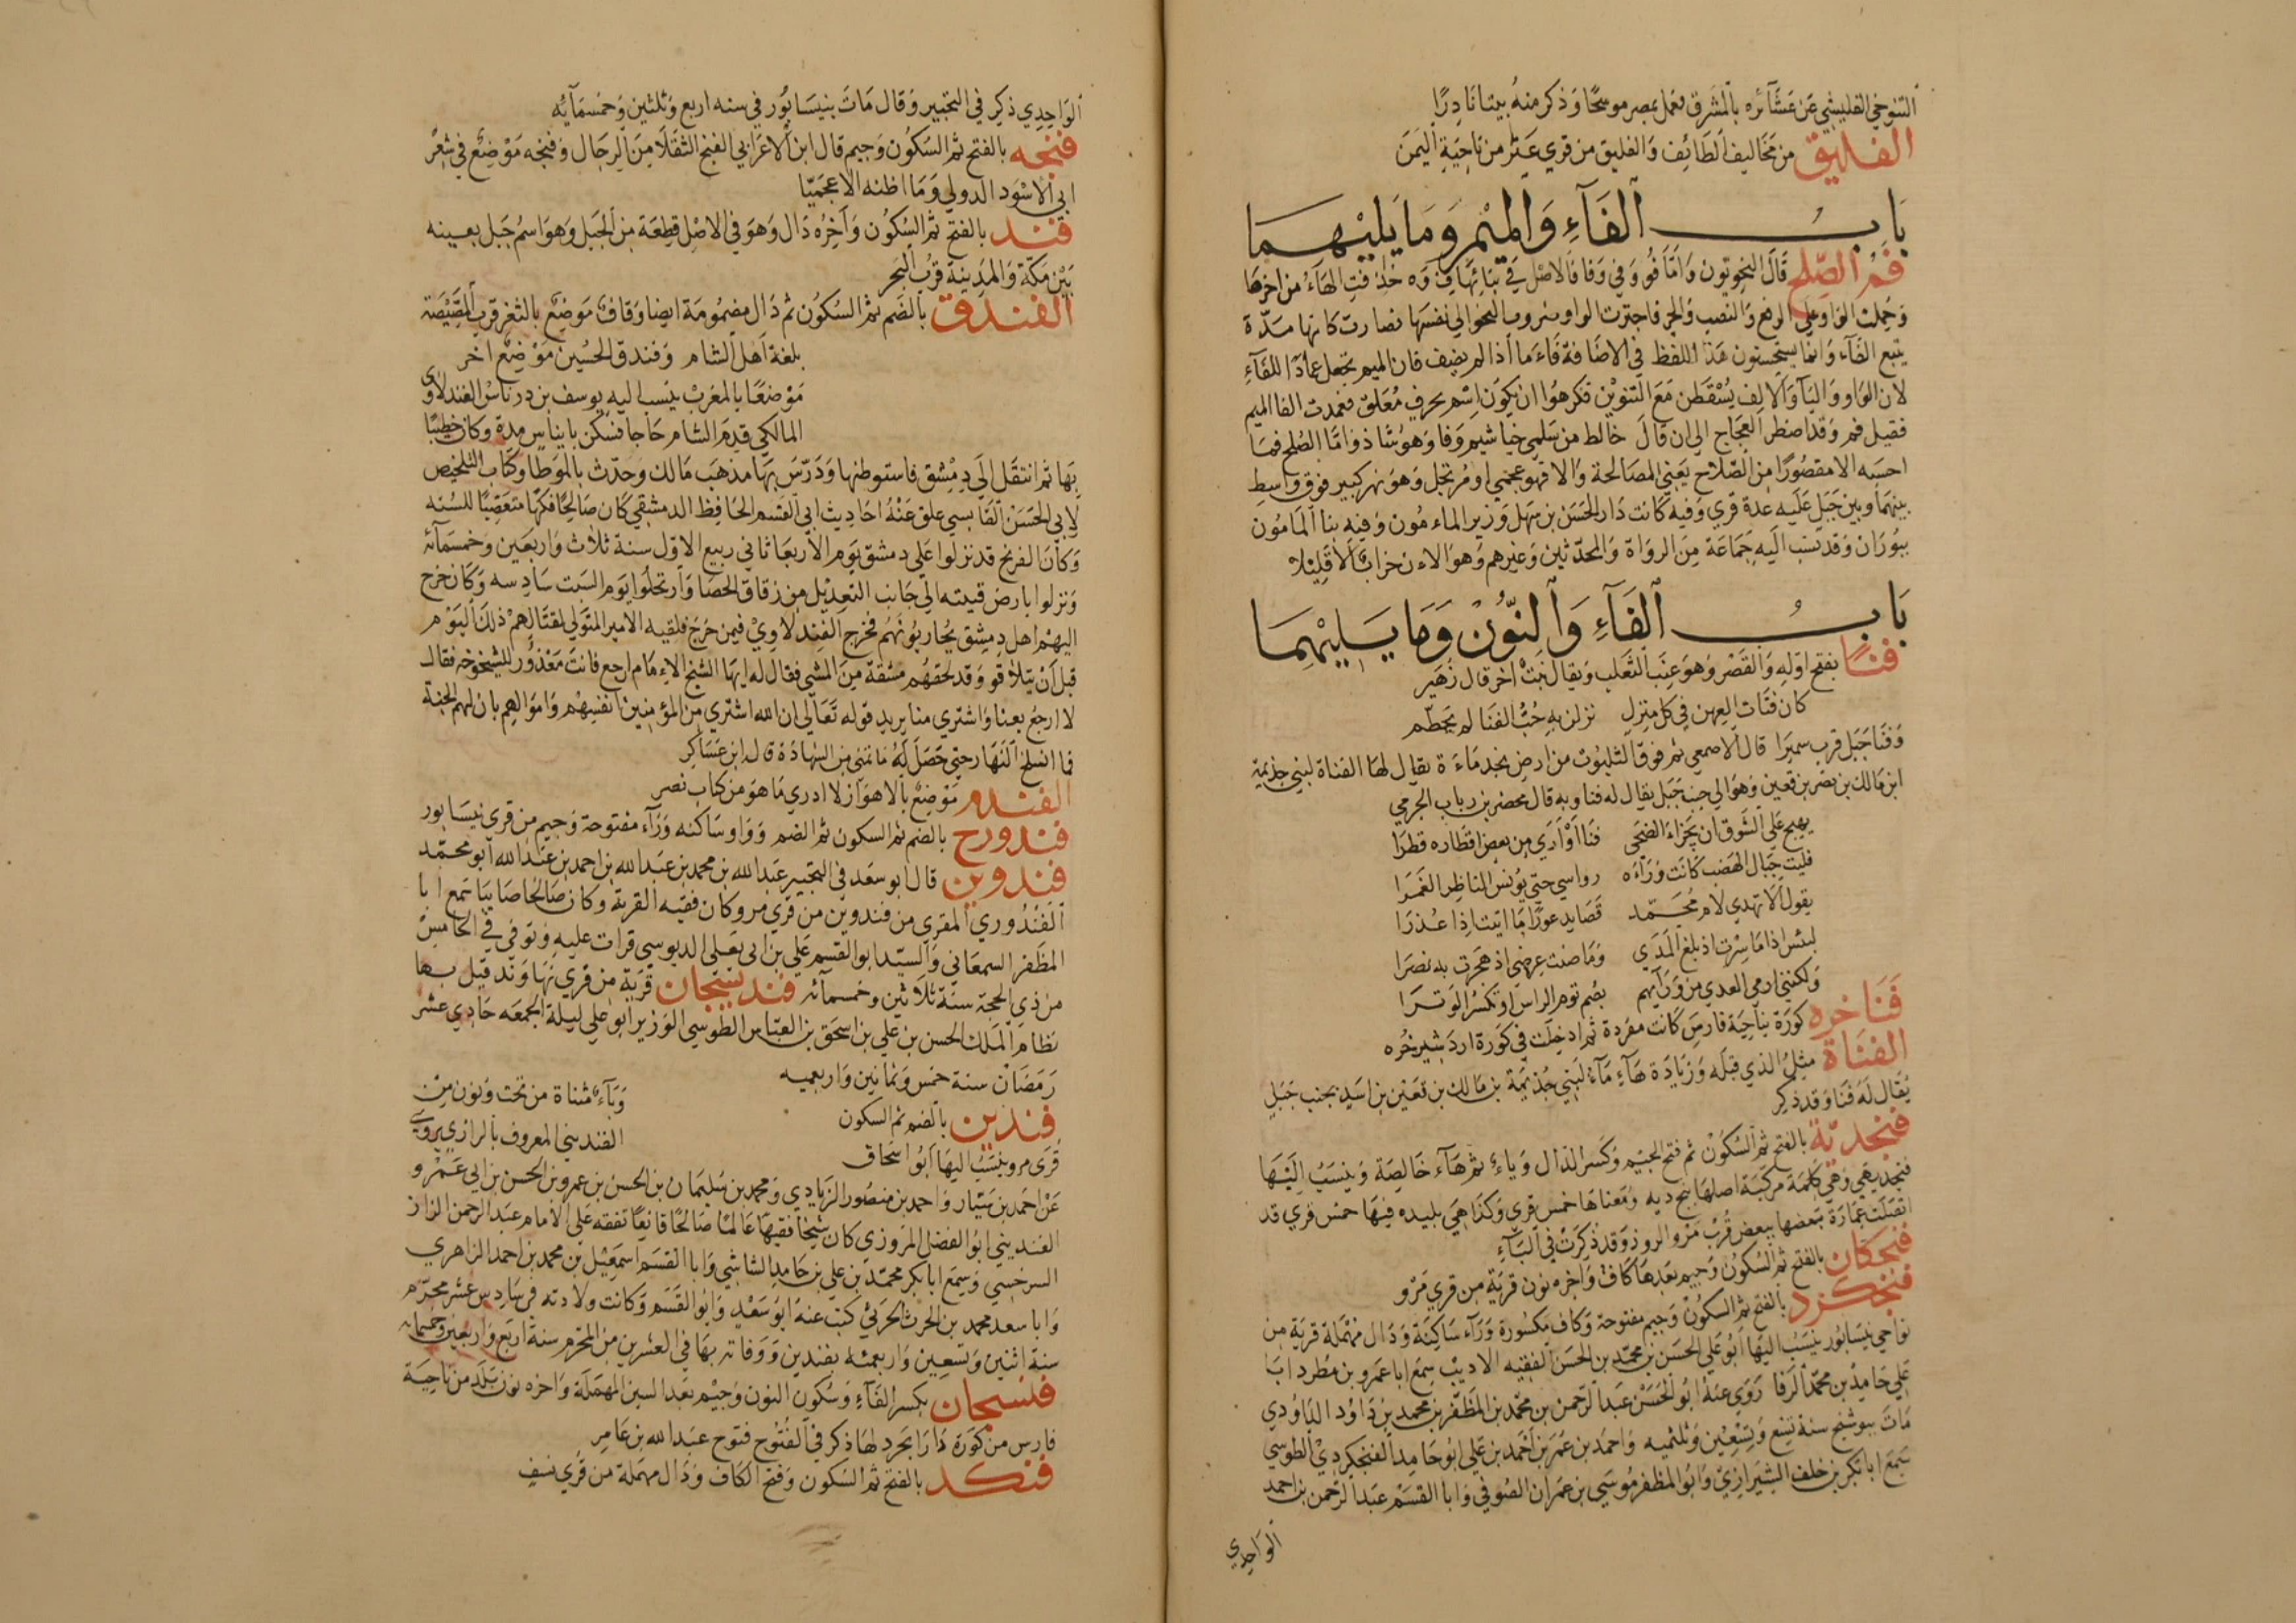 التنوخي الفليشي عن عشائره بالمشرق فعمل بمصر موشحًا وذكر منه بيتا نادرًا
الفليق من مخاليف الطائف والفليق من قري عثر من ناحية اليمن
باب الفآء والميم وما يليهما
فم الصلح قال النحويون واما فو وفي وفا فالاصل في بنائها فوه حذفت الهآء من اخرها
وحملت الواو علي الرفع والنصب والجر فاجترت الواو ضروب النحو الي نفسها فصارت كانها مدة
يتبع الفآء وانما يستحسنون هذا اللفظ في الاضافة فاما اذا لم يضف فان الميم تجعل عمادًا للفآء
لان الواو واليآ والالف يسقطن مع التنوين فكرهوا ان يكون اسم بحرف مغلق فعمدت الفا الميم
فقيل فم وقد اضطر العجاج الي ان قال خالط من سلمي خياشيم وفا وهو شاذ واما الصلح فما
احسبه الا مقصورًا من الصلاح يعني المصالحة والا فهو عجمي او مرتجل وهو نهر كبير فوق واسط
بينهما وبين جبل عليه عدة قري وفيه كانت دار الحسن بن سهل وزير الماءمون وفيه بنا المامون
ببوران وقد نسب اليه جماعة من الرواة والمحدثين وغيرهم وهو الاءن خراب الا قليلا
باب الفآء والنون وما يليهما
فنًا بفتح اوله والقصر وهو عنب الثعلب ويقال نبت اخر قال زهير
كان فتات العهن في كل منزل نزلن به حب الفنا لم يحطم
وفنا جبل قرب سميرا قال الاصمعي ثم فوق الثلبوت من ارض نجد ماءة يقال لها الفناة لبني جذيمة
ابن مالك بن نصر بن قعين وهو الي جنب جبل يقال له فنا وبه قال محضر بن رباب الجرمي
يهيج علي الشوق ان تجزاء الضحى فنا او اري من بعض اقطاره قطرا
فليت جبال الهضب كانت ورآءه رواسي حتي يونس الناظر الغمرا
يقول الا تهدي لام محمد قصايد عورًا ما اتيت اذا عذرا
لبئس اذا ما سرت اذ بلغ المدي وما صنت عرضي اذ هجرت به نصرا
ولكنني ارمي العدي من ورآيهم بصم توم الراس او تكسر الوترا
فناخره كورة بناحية فارس كانت مفردة ثم ادخلت في كورة اردشير خره
الفناة مثل الذي قبله وزيادة هآء مآء لبني جذيمة بن مالك بن قعين بن اسد بجنب جبل
يقال له فنا وقد ذكر
فنجديه بالفتح ثم السكون ثم فتح الجيم وكسر الذال وياء ثم هآء خالصة وينسب اليها
فنجديهي وهي كلمة مركبة اصلها پنج ديه ومعناها خمس قري وكذا هي بليده فيها خمس قري قد
اتصلت عمارة بعضها ببعض قرب مرو الروذ وقد ذكرت في البآء
فنجكان بالفتح ثم السكون وجيم بعدها كاف واخره نون قرية من قري مرو
فنجكرد بالفتح ثم السكون وجيم مفتوحة وكاف مكسورة ورآء ساكنة ودال مهملة قرية من
نواحي نيسابور ينسب اليها ابو علي الحسن بن محمد بن الحسن الفقيه الاديب سمع ابا عمرو بن مطر وابا
علي حامد بن محمد الرفا روى عنه ابو الحسن عبد الرحمن بن محمد بن المظفر بن محمد بن داود الداودي
مات ببوشنج سنة تسع وتسعين وثلثميه واحمد بن عمر بن احمد بن علي ابو حامد الفنجكردي الطوسي
سمع ابا بكر بن خلف الشيرازي وابو المظفر موسي بن عمران الصوفي وابا القسم عبد الرحمن بن احمد
الواحدي
الواحدي ذكر في التحبير وقال مات بنيسابور في سنه اربع وثلثين وخمسمآيه
فنجه بالفتح ثم السكون وجيم قال ابن الاعرابي الفنج الثقلا من الرجال وفنجه موضع في شعر
ابي الاسود الدولي وما اظنه الا عجميًا
فند بالفتح ثم السكون وآخره دال وهو في الاصل قطعة من الجبل وهو اسم جبل بعينه
بين مكة والمدينة قرب البحر
الفندق بالضم ثم السكون ثم دال مضمومة ايضا وقاف موضع بالثغر قرب المصيصة
بلغة اهل الشام وفندق الحسين موضع اخر
موضعًا بالمغرب ينسب اليه يوسف بن درناس الفندلاوي
المالكي قدم الشام حاجا فسكن بانياس مدة وكان خطيبًا
بها ثم انتقل الى دمشق فاستوطنها ودرس بها مذهب مالك وحدث بالموطا وكتاب التلخيص
لابي الحسن القابسي علق عنه احاديث ابي القسم الحافظ الدمشقي كان صالحًا فكها متعصبًا للسنه
وكان الفرنج قد نزلوا علي دمشق يوم الاربعا ثاني ربيع الاول سنة ثلاث واربعين وخمسمآئه
ونزلوا بارض قينيه الي جانب التعديل من زقاق الحصا وارتحلوا يوم السبت سادسه وكان خرج
اليهم اهل دمشق يحاربونهم فخرج الفندلاوي فيمن خرج فلقيه الامير المتولي لقتالهم ذلك اليوم
قبل ان يتلاقو وقد لحقهم مشقة من المشي فقال له ايها الشيخ الاءمام ارجع فانت معذور للشيخوخه فقال
لا ارجع بعنا واشتري منا يريد قوله تعالي ان الله اشتري من المؤمنين انفسهم واموالهم بان لهم الجنة
فما انسلخ النهار حتي حصل له ما تمني من الشهادة قاله ابن عساكر
الفندم موضع بالاهواز لا ادري ما هو من كتاب نصر
فندورج بالضم ثم السكون ثم الضم وواو ساكنه ورآء مفتوحة وجيم من قري نيسابور
فندوين قال ابو سعد في التحبير عبد الله بن محمد بن عبد الله بن احمد بن عبد الله ابو محمد
الفندوري المقري من فندوين من قري مرو كان فقيه القرية وكان صالحا صاينا سمع ابا
المظفر السمعاني والسيد ابو القسم علي بن ابي يعلى الدبوسي قرات عليه وتوفي في الخامس
من ذي الحجة سنة ثلاثين وخمسمآئه فنديسجان قرية من قري نهاوند قيل بها
نظام الملك الحسن بن علي بن اسحق بن العباس الطوسي الوزير ابو علي ليلة الجمعه حادي عشر
رمضان سنة خمس وثمانين واربعميه
فندين بالضم ثم السكون ويآء مثناة من تحت ونون من
قرى مرو ينسب اليها ابو اسحاق الفنديني المعروف بالرازي يروي
عن احمد بن سيار واحمد بن منصور الزيادي ومحمد بن سليمان بن الحسن بن عمرو بن الحسن بن ابي عمرو
الفنديني ابو الفضل المروزي كان شيخا فقيها عالمًا صالحًا قانعًا تفقه علي الامام عبد الرحمن الزاز
السرخسي وسمع ابا بكر محمد بن علي بن حامد الشاشي وابا القسم اسمعيل بن محمد بن احمد الزاهري
وابا سعد محمد بن الحرث الحرثي كتب عنه ابو سعد وابو القسم وكانت ولادته في سادس عشر محرم
سنة اثنين وتسعين واربعمئة بفندين ووفاته بها في العشرين من المحرم سنة اربع واربعين وخمسمايه
فنسجان بكسر الفآء وسكون النون وجيم بعد السين المهملة واخره نون بلد من ناحية
فارس من كورة دارابجرد لها ذكر في الفتوح فتوح عبد الله بن عامر
فنكد بالفتح ثم السكون وفتح الكاف ودال مهملة من قري نسف